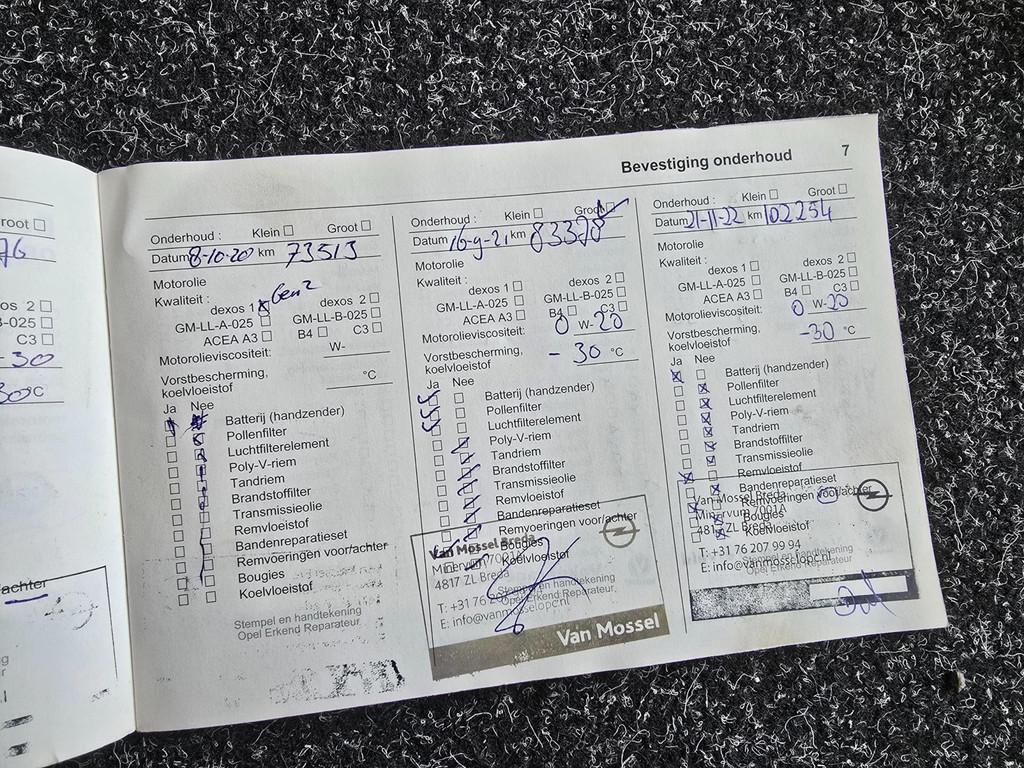 Bevestiging onderhoud 7
root ☐
76
xos 2 ☐
B-025 ☐
C3 ☐
-30
30°C
achter
Onderhoud : Klein ☐ Groot ☐
Datum 8-10-20 km 73513
Motorolie
Kwaliteit :
dexos 1 ☒ Gen 2 dexos 2 ☐
GM-LL-A-025 ☐ GM-LL-B-025 ☐
ACEA A3 ☐ B4 ☐ C3 ☐
Motorolieviscositeit: W-
Vorstbescherming,
koelvloeistof °C
Ja Nee
Batterij (handzender)
Pollenfilter
Luchtfilterelement
Poly-V-riem
Tandriem
Brandstoffilter
Transmissieolie
Remvloeistof
Bandenreparatieset
Remvoeringen voor/achter
Bougies
Koelvloeistof
Stempel en handtekening
Opel Erkend Reparateur.
Onderhoud : Klein ☐ Groot ☑
Datum 16-9-21 km 83378
Motorolie
Kwaliteit :
dexos 1 ☐ dexos 2 ☐
GM-LL-A-025 ☐ GM-LL-B-025 ☐
ACEA A3 ☐ B4 ☐ C3 ☐
Motorolieviscositeit: 0 W-20
Vorstbescherming,
koelvloeistof -30 °C
Ja Nee
Batterij (handzender)
Pollenfilter
Luchtfilterelement
Poly-V-riem
Tandriem
Brandstoffilter
Transmissieolie
Remvloeistof
Bandenreparatieset
Remvoeringen voor/achter
Bougies
Koelvloeistof
Van Mossel Breda
4817 ZL Breda
Stempel en handtekening
Opel Erkend Reparateur.
T: +31 76
E: info@vanmosselopc.nl
Van Mossel
Onderhoud : Klein ☐ Groot ☐
Datum 21-11-22 km 102254
Motorolie
Kwaliteit :
dexos 1 ☐ dexos 2 ☐
GM-LL-A-025 ☐ GM-LL-B-025 ☐
ACEA A3 ☐ B4 ☐ C3 ☐
Motorolieviscositeit: 0 W-20
Vorstbescherming,
koelvloeistof -30 °C
Ja Nee
Batterij (handzender)
Pollenfilter
Luchtfilterelement
Poly-V-riem
Tandriem
Brandstoffilter
Transmissieolie
Remvloeistof
Bandenreparatieset
Remvoeringen voor/achter
Bougies
Koelvloeistof
Van Mossel Breda
Minervum 7001A
4817 ZL Breda
T: +31 76 207 99 94
E: info@vanmosselopc.nl
Stempel en handtekening
Opel Erkend Reparateur.